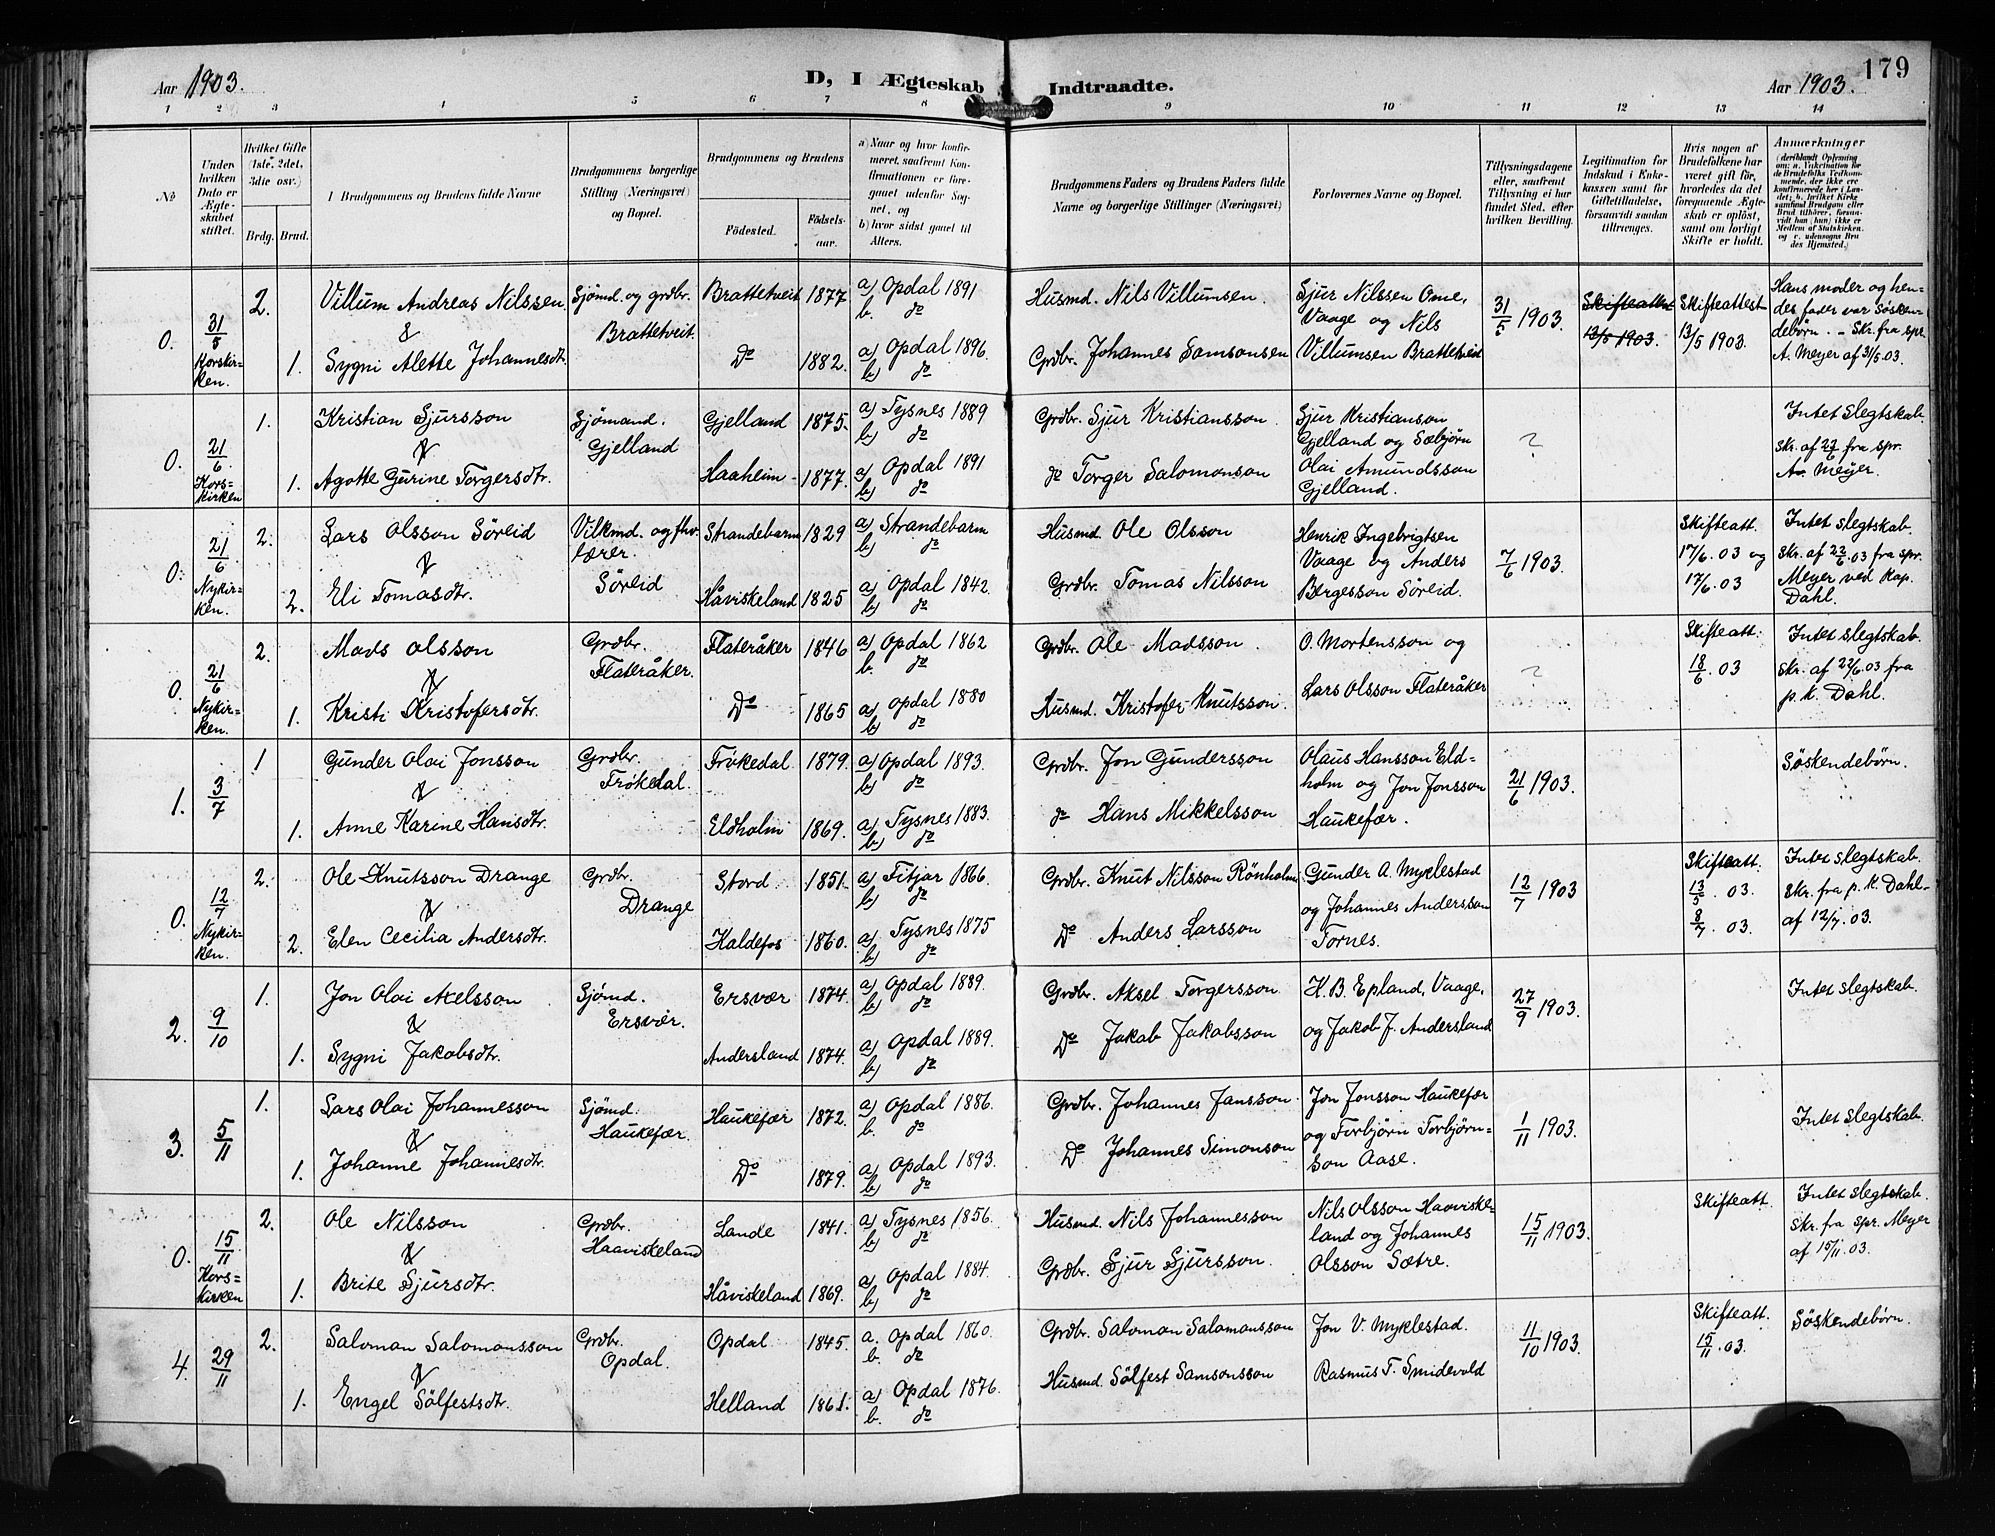 Aar 1903.
D, I Ægteskab Indtraadte.
Aar 1903.
179
1 2 3 4 5 6 7 8 9 10 11 12 13 14
No
Under hvilken Dato er Ægteskabet stiftet.
Hvilket Gifte (1ste, 2det, 3die osv.)
Brdg. Brud.
Brudgommens og Brudens fulde Navne
Brudgommens borgerlige Stilling (Næringsvei) og Bopæl.
Brudgommens og Brudens
Födested.
Födselsaar.
a) Naar og hvor konfirmeret, saafremt Konfirmationen er foregaaet udenfor Sognet, og
b) hvor sidst gaaet til Alters.
Brudgommens Faders og Brudens Faders fulde Navne og borgerlige Stillinger (Næringsvei)
Forlovernes Navne og Bopæl.
Tillysningsdagene eller, saafremt Tillysning ei har fundet Sted, efter hvilken Bevilling.
Legitimation for Indskud i Enkekassen samt for Giftetilladelse, forsaavidt saadan tiltrænges.
Hvis nogen af Brudefolkene har været gift för, hvorledes da det foregaaende Ægteskab er oplöst, samt om lovligt Skifte er holdt.
Anmærkninger (deriblandt Oplysning om: a. Vakcination for de Brudefolks Vedkommende, der ikke ere konfirmerede her i Landet; b. hvilket Kirkesamfund Brudgom eller Brud tilhörer, forsaavidt han (hun) ikke er Medlem af Statskirken, og c. udensogns Brudes Hjemsted.)
0. 31/5 Korskirken. 2. Villum Andreas Nilssen Sjømd. og grdbr. Brattetveit. Brattetveit 1877 a) Opdal 1891 b. do Husmd. Nils Villumsen. Sjur Nilssen Ome, Vaage og Nils Villumsen Brattetveit 31/5 1903. Skifteattest 13/5 1903. Skifteattest 13/5 1903. Hans moder og hendes fader var Søskendebørn. - Skr. fra spr. A. Meyer af 31/5.03.
&
1. Sygni Alette Johannesdtr. Do 1882. a) Opdal 1896. b) do Grdbr. Johannes Samsonsen
0. 21/6 Korskirken 1. Kristian Sjursson Sjømand. Gjelland Gjelland 1875. a) Tysnes 1889 b) do Grdbr. Sjur Kristiansson Sjur Kristianson Gjelland og Sæbjørn Olai Amundsson Gjelland. ? Intet slegtskab. Skr. af 22/6 fra spr. A. Meyer.
&
1. Agotte Gurine Torgersdtr. Haaheim 1877. a) Opdal 1891 b) do do Torger Salomonson
0. 21/6 Nykirken. 2. Lars Olsson Sörlid Vilkmd. og fhv. lærer. Sörlid Strandebarm 1829 a) Strandebarm b) do Husmd. Ole Olsson Henrik Ingebrigtsen Vaage og Anders Bergesson Sörlid. 7/6 1903. Skifteatt. 17/6.03 og 17/6.03 Intet slegtskab. Skr. af 22/6.03 fra spr. Meyer ved kap. Dahl.
&
2. Eli Tomasdtr. Håviskeland 1825 a) Opdal 1842. b) do Grdbr. Tomas Nilsson
0. 21/6 Nykirken. 2. Mads Olsson Grdbr. Flateråker. Flateråker 1846 a) Opdal 1862 b. do Grdbr. Ole Madsson O. Mortensson og Lars Olsson Flateråker ? Skifteatt. 18/6.03 Intet slegtskab. Skr. af 22/6.03 fra p. k. Dahl.
&
1. Kristi Kristofersdtr. Do 1865 a) Opdal 1880 b) do Husmd. Kristofer Knutsson
1. 3/7 1 Gunder Olai Jonsson Grdbr. Frøkedal. Frøkedal 1879. a) Opdal 1893. b) do Grdbr. Jon Gundersson Olaus Hansson Eldholm og Jon Jonsson Haukefær. 21/6 1903. Söskendebörn.
&
1. Anne Karine Hansdtr. Eldholm 1869. a) Tysnes 1883. b) do do Hans Mikkelsson
0. 12/7 Nykirken. 2. Ole Knutsson Drange Grdbr. Drange Stord 1851. a) Fitjar 1866. b) do Grdbr. Knut Nilsson Rönholm Gunder A. Myklestad og Johannes Andersson Tornes. 12/7 1903 Skifteatt. 13/5.03. 8/7.03. Intet slegtskab. Skr. fra p. k. Dahl af 12/7.03.
&
2. Elen Cecilia Andersdtr. Haldefos 1860. a) Tysnes 1875 b) do Do Anders Larsson
2. 9/10 1. Jon Olai Axelsson Sjømd. Ersvær. Ersvær 1874. a) Opdal 1889. b) do Grdbr. Aksel Torgersson H. B. Epland, Vaage, og Jakob J. Andersland 27/9 1903. Intet slegtskab.
&
1. Sygni Jakobsdtr. Andersland 1874. a) Opdal 1889. b) do Do Jakob Jakobsson
3. 5/11 1. Lars Olai Johannesson Sjømd. Haukefær. Haukefær 1872. a) Opdal 1886. b. do Grdbr. Johannes Jansson Jon Jonsson Haukefær og Torbjörn Torbjörnson Aase. 1/11 1903. Intet slegtskab.
&
1. Johanne Johannesdtr. Do 1879. a) Opdal 1893. b) do Do Johannes Simonson
0. 15/11 Korskirken 2. Ole Nilsson Grdbr. Haaviskeland Lande 1841. a) Tysnes 1856. b) do Husmd. Nils Johannesson Nils Olsson Haaviskeland og Johannes Olsson Sætre. 15/11 1903. Skifteatt. Intet slegtskab. Skr. fra spr. Meyer af 15/11.03.
&
1. Brite Sjursdtr. Håviskeland 1869. a) Opdal 1884. b) do Grdbr. Sjur Sjursson.
4. 29/11 2. Salomon Salomonsson Grdbr. Opdal. Opdal 1845. a. Opdal 1860. b. do Grdbr. Salomon Salomonsson Jon V. Myklestad. Rasmus T. Smidevold 11/10 1903. Skifteatt. 15/11.03. Söskendebörn.
&
1. Engel Sölfestsdtr. Helland 1861. a) Opdal 1876. b. do Husmd. Sölfest Samsonsson